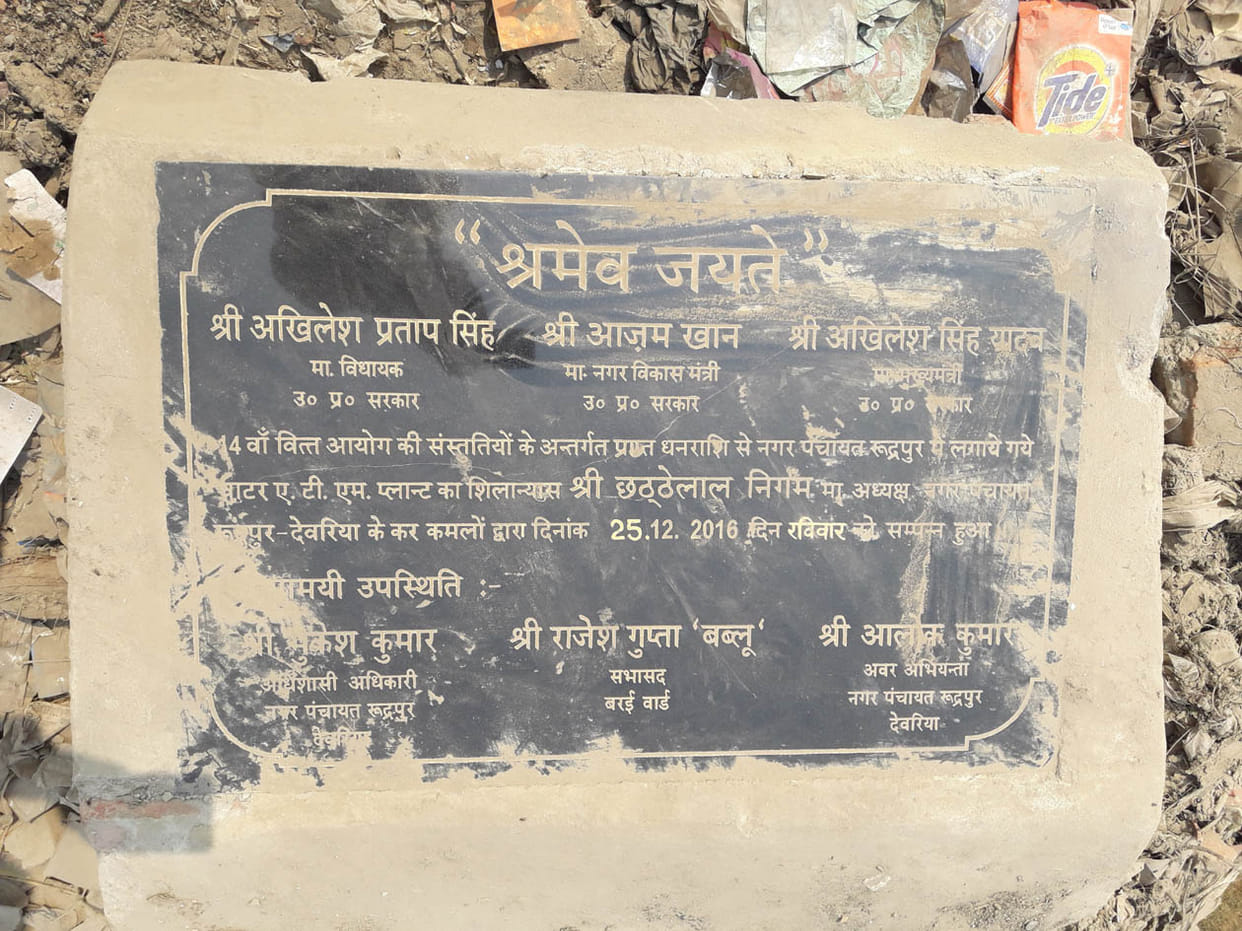 “श्रमेव जयते”
श्री अखिलेश प्रताप सिंह श्री आज़म खान श्री अखिलेश सिंह यादव
मा. विधायक मा. नगर विकास मंत्री मा. मुख्यमंत्री
उ० प्र० सरकार उ० प्र० सरकार उ० प्र० सरकार
14 वाँ वित्त आयोग की संस्ततियों के अन्तर्गत प्राप्त धनराशि से नगर पंचायत रूद्रपुर में लगाये गये
वाटर ए. टी. एम. प्लान्ट का शिलान्यास श्री छठ्ठेलाल निगम मा. अध्यक्ष नगर पंचायत
रूद्रपुर-देवरिया के कर कमलों द्वारा दिनांक 25.12. 2016 दिन रविवार को सम्पन्न हुआ
उपस्थिति :-
श्री मुकेश कुमार श्री राजेश गुप्ता 'बब्लू' श्री आलोक कुमार
अधिशासी अधिकारी सभासद अवर अभियन्ता
नगर पंचायत रूद्रपुर बरई वार्ड नगर पंचायत रूद्रपुर
देवरिया देवरिया
Tide